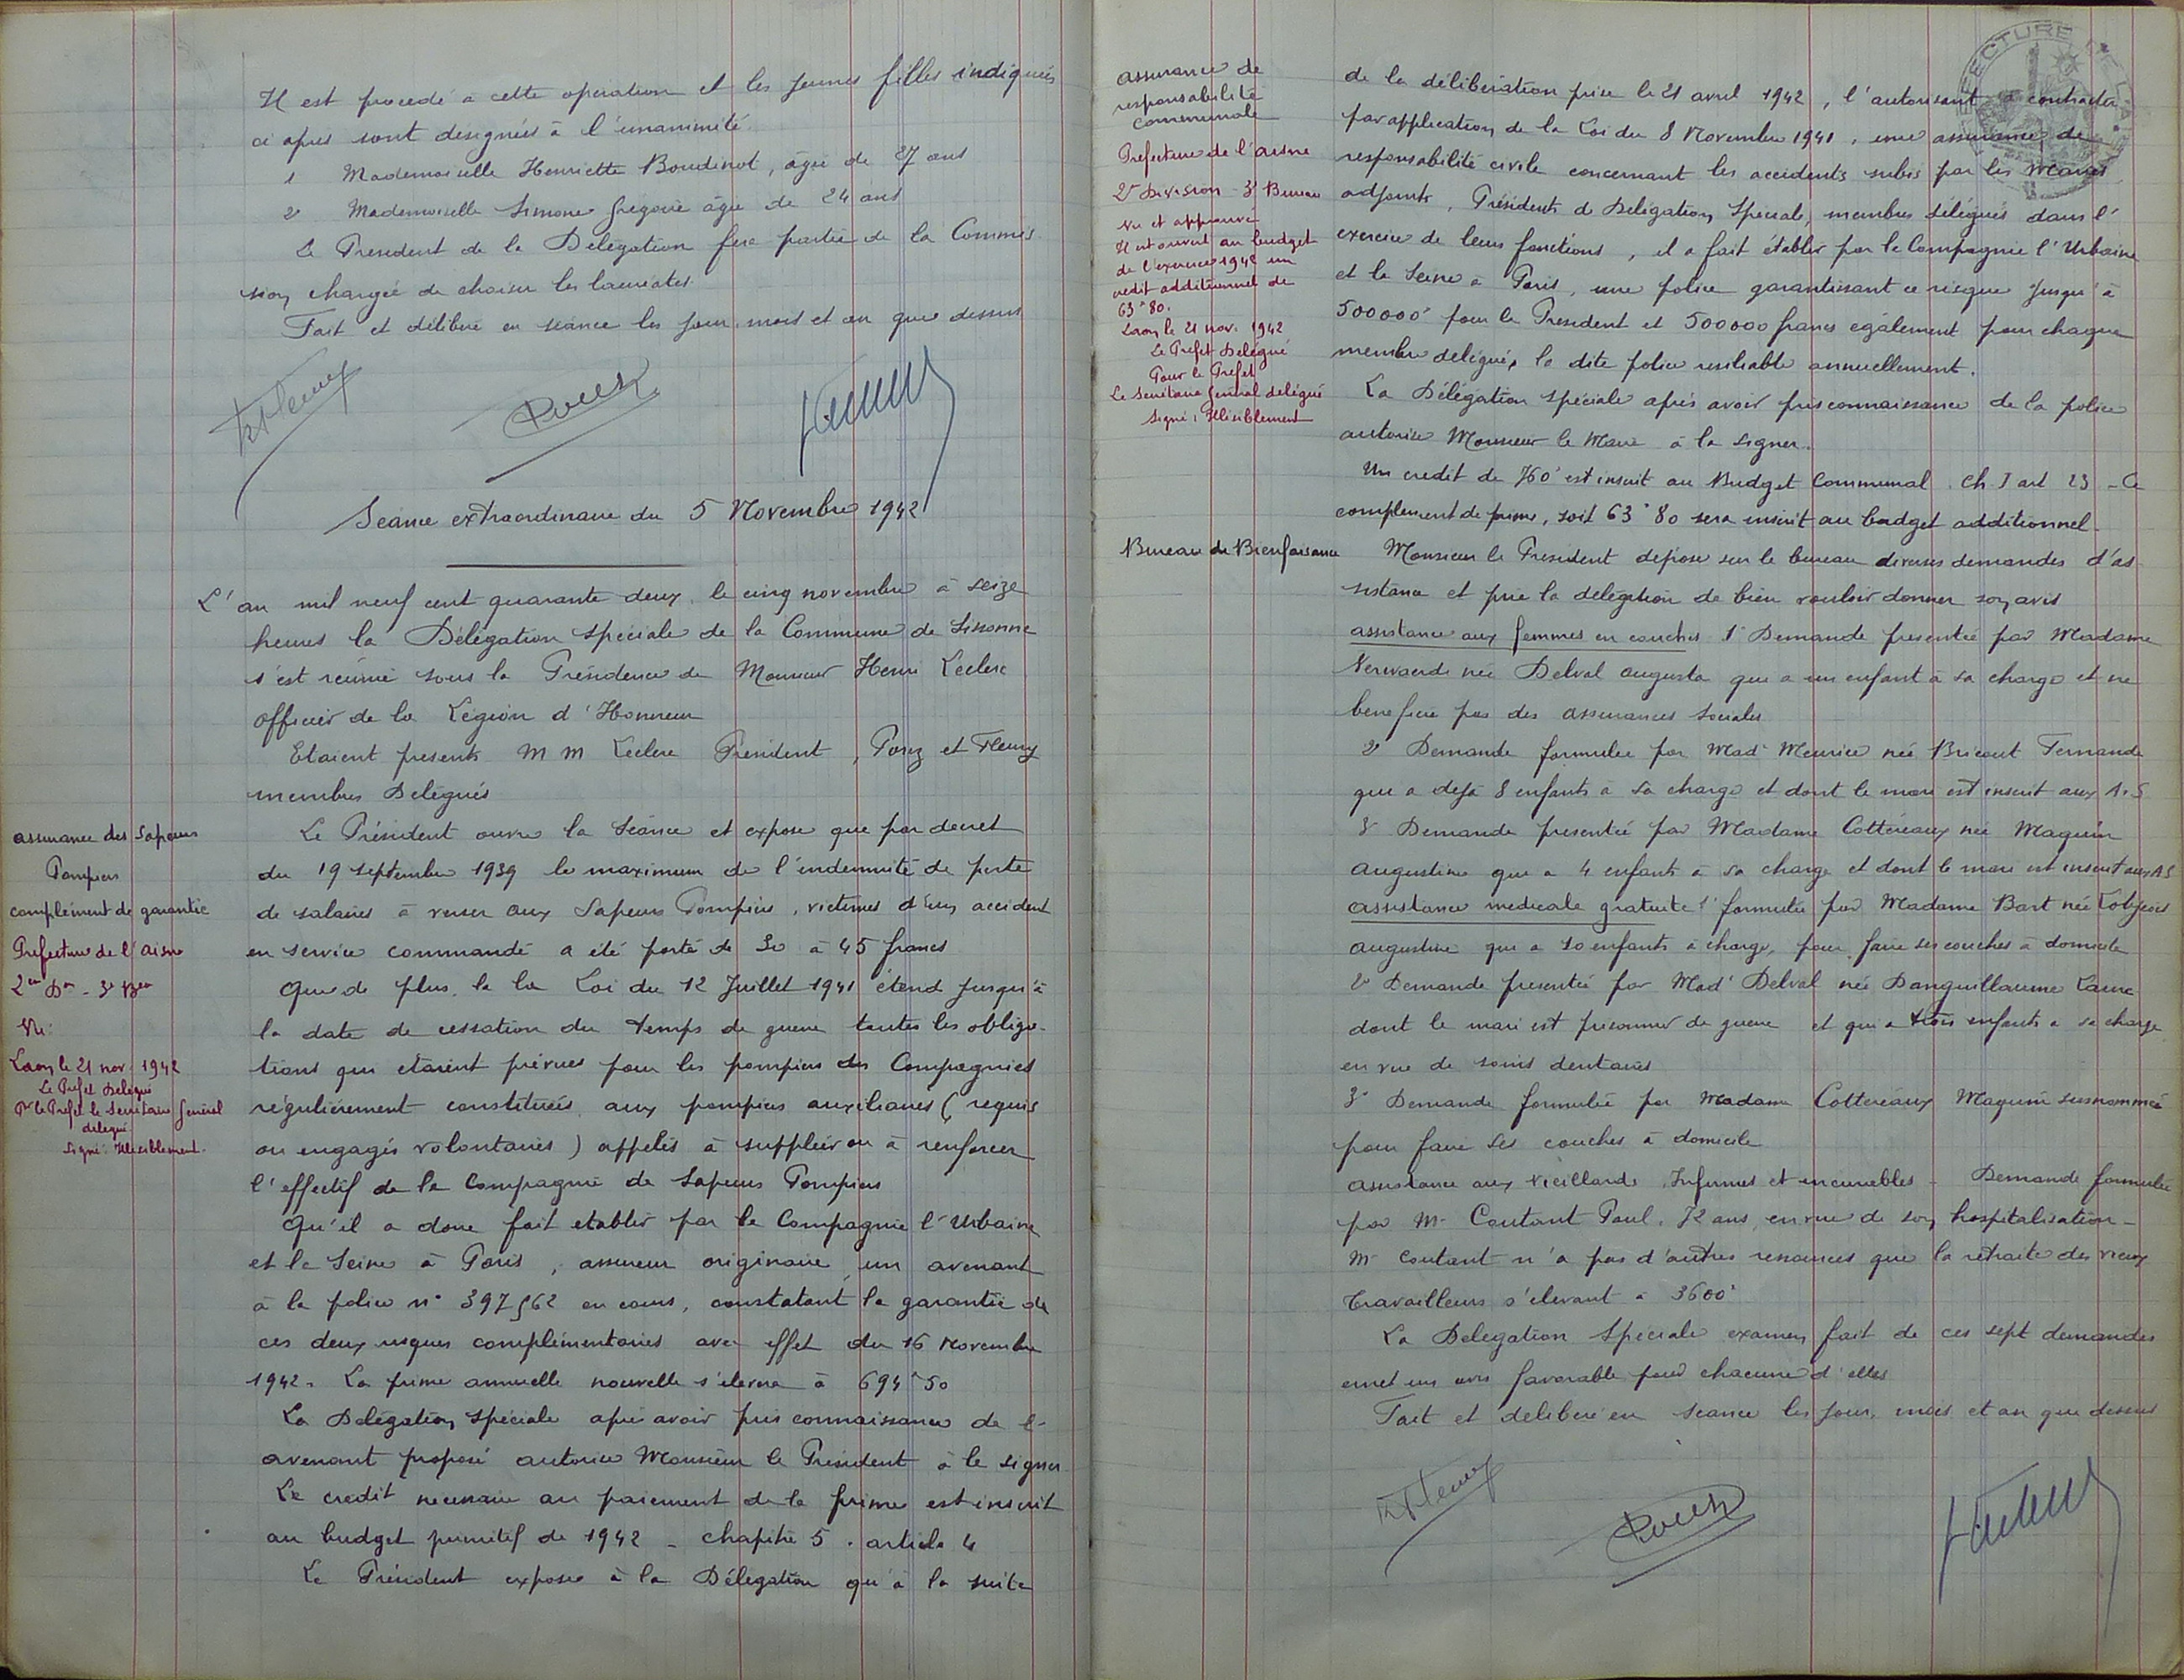 Il est procedé à cette opération et les jeunes filles indiquées
ci apres sont designées à l'unanimité.
1 Mademoiselle Henriette Boudinot, âgée de 27 ans
2° Mademoiselle Simone Gregoire âgée de 24 ans
Le President de la Délégation fera partie de la Commis
sion chargée de choisir les lauréates.
Fait et délibéré en séance les jour, mois et an que dessus
Séance extraordinaire du 5 Novembre 1942
L'an mil neuf cent quarante deux, le cinq novembre à seize
heures la Délégation Spéciale de la Commune de Sissonne
s'est réunie sous la Présidence de Monsieur Henri Leclerc
officier de la Légion d'Honneur
Etaient presents M M Leclerc President, Porez et Fleury
membres Delegués
assurance des Sapeurs
Pompiers
complément de garantie
Prefecture de l'Aisne
2em Don - 3e Beau
Vu:
Laon le 21 nov. 1942
Le Prefet Delegué
Pr le Prefet le Secretaire Général
delegué
Signé: Illisiblement.
Le Président ouvre la Séance et expose que par decret
du 19 septembre 1939 le maximum de l'indemnité de perte
de salaires à verser aux Sapeurs Pompiers, victimes d'un accident
en service commandé a été porté de 30 à 45 francs
Que de plus, la la Loi du 12 Juillet 1941 étend jusqu'à
la date de cessation du temps de guerre toutes les obliga-
tions qui etaient prévues pour les pompiers des Compagnies
régulièrement constituées, aux pompiers auxiliaires (requis
ou engagés volontaires) appelés à suppléer ou à renforcer
l'effectif de la Compagnie de Sapeurs Pompiers
Qu'il a donc fait etablir par la Compagnie l'Urbaine
et la Seine à Paris, assureur originaire, un avenant
à la police n° 397562 en cours, constatant la garantie de
ces deux risques complémentaires avec effet du 16 Novembre
1942. La prime annuelle nouvelle s'elevera à 694f50
La Délégation Spéciale après avoir pris connaissance de l'
avenant proposé autorise Monsieur le President à le signer
Le credit necessaire au paiement de la prime est inscrit
au budget primitif de 1942 - chapitre 5. article 4
Le Président expose à la Délégation qu'à la suite
assurance de
responsabilité
communale
Prefecture de l'Aisne
2e Division - 3e Bureau
Vu et approuvé
Il est ouvert au budget
de l'exercice 1942 un
credit additionnel de
63f80.
Laon le 21 nov. 1942
Le Prefet Delegué
Pour le Prefet
Le Secretaire General delegué
Signé: Illisiblement
de la délibération prise le 21 avril 1942, l'autorisant à contracter
par application de la Loi du 8 Novembre 1941, une assurance de
responsabilité civile concernant les accidents subis par les Maires
adjoints, Présidents de Délégation Spéciale, membres délégués dans l'
exercice de leurs fonctions, il a fait établir par la Compagnie l'Urbaine
et la Seine à Paris, une police garantissant ce risque jusqu'à
500000f pour le President et 500000 francs également pour chaque
membre delégué, la dite police resiliable annuellement.
La Délégation Spéciale après avoir pris connaissance de la police
autorise Monsieur le Maire à la signer.
Un credit de 760f est inscrit au Budget Communal. Ch. I art 23 - Ce
complement de prime, soit 63f80 sera inscrit au budget additionnel.
Bureau de Bienfaisance
Monsieur le President depose sur le bureau diverses demandes d'as
sistance et prie la délégation de bien vouloir donner son avis
assistance aux femmes en couches 1° Demande presentée par Madame
Verwaerde née Delval Augusta qui a un enfant à sa charge et ne
beneficie pas des assurances sociales
2° Demande formulée par Made Meurice née Bricout Fernande
qui a dejà 8 enfants à sa charge et dont le mari est inscrit aux A.S
3° Demande presentée par Madame Cottereaux née Maquin
Augustine qui a 4 enfants à sa charge et dont le mari est inscrit aux AS
assistance medicale gratuite 1° formulée par Madame Bart née Lobjois
Augustine qui a 10 enfants à charge, pour faire ses couches à domicile
2° Demande presentée par Made Delval née Danguillaume Laure
dont le mari est prisonnier de guerre et qui a trois enfants à sa charge
en vue de soins dentaires
3° Demande formulée par Madame Cottereaux Maquin susnommée
pour faire ses couches à domicile
assistance aux Vieillards, Infirmes et incurables - Demande formulée
par Mr Coutant Paul, 72 ans, en vue de son hospitalisation -
Mr Coutant n'a pas d'autres ressources que la retraite des vieux
Travailleurs s'elevant à 3600f
La Delegation Speciale examen fait de ces sept demandes
emet un avis favorable pour chacune d'elles
Fait et deliberé en séance les jour, mois et an que dessus